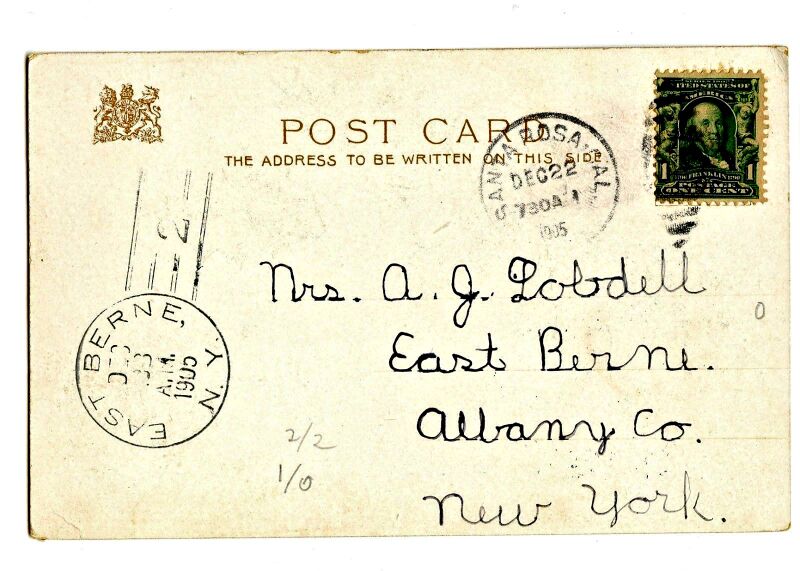 POST CARD
THE ADDRESS TO BE WRITTEN ON THIS SIDE
SANTA ROSA, CAL.
DEC 22
730 A M
1905
SERIES 1902
UNITED STATES OF
AMERICA
1706 FRANKLIN 1790
1 POSTAGE 1
ONE CENT
2
EAST BERNE, N.Y.
DEC
A.M.
1905
Mrs. A. J. Lobdell
East Berne.
Albany Co.
New York.
0
2/2
1/0